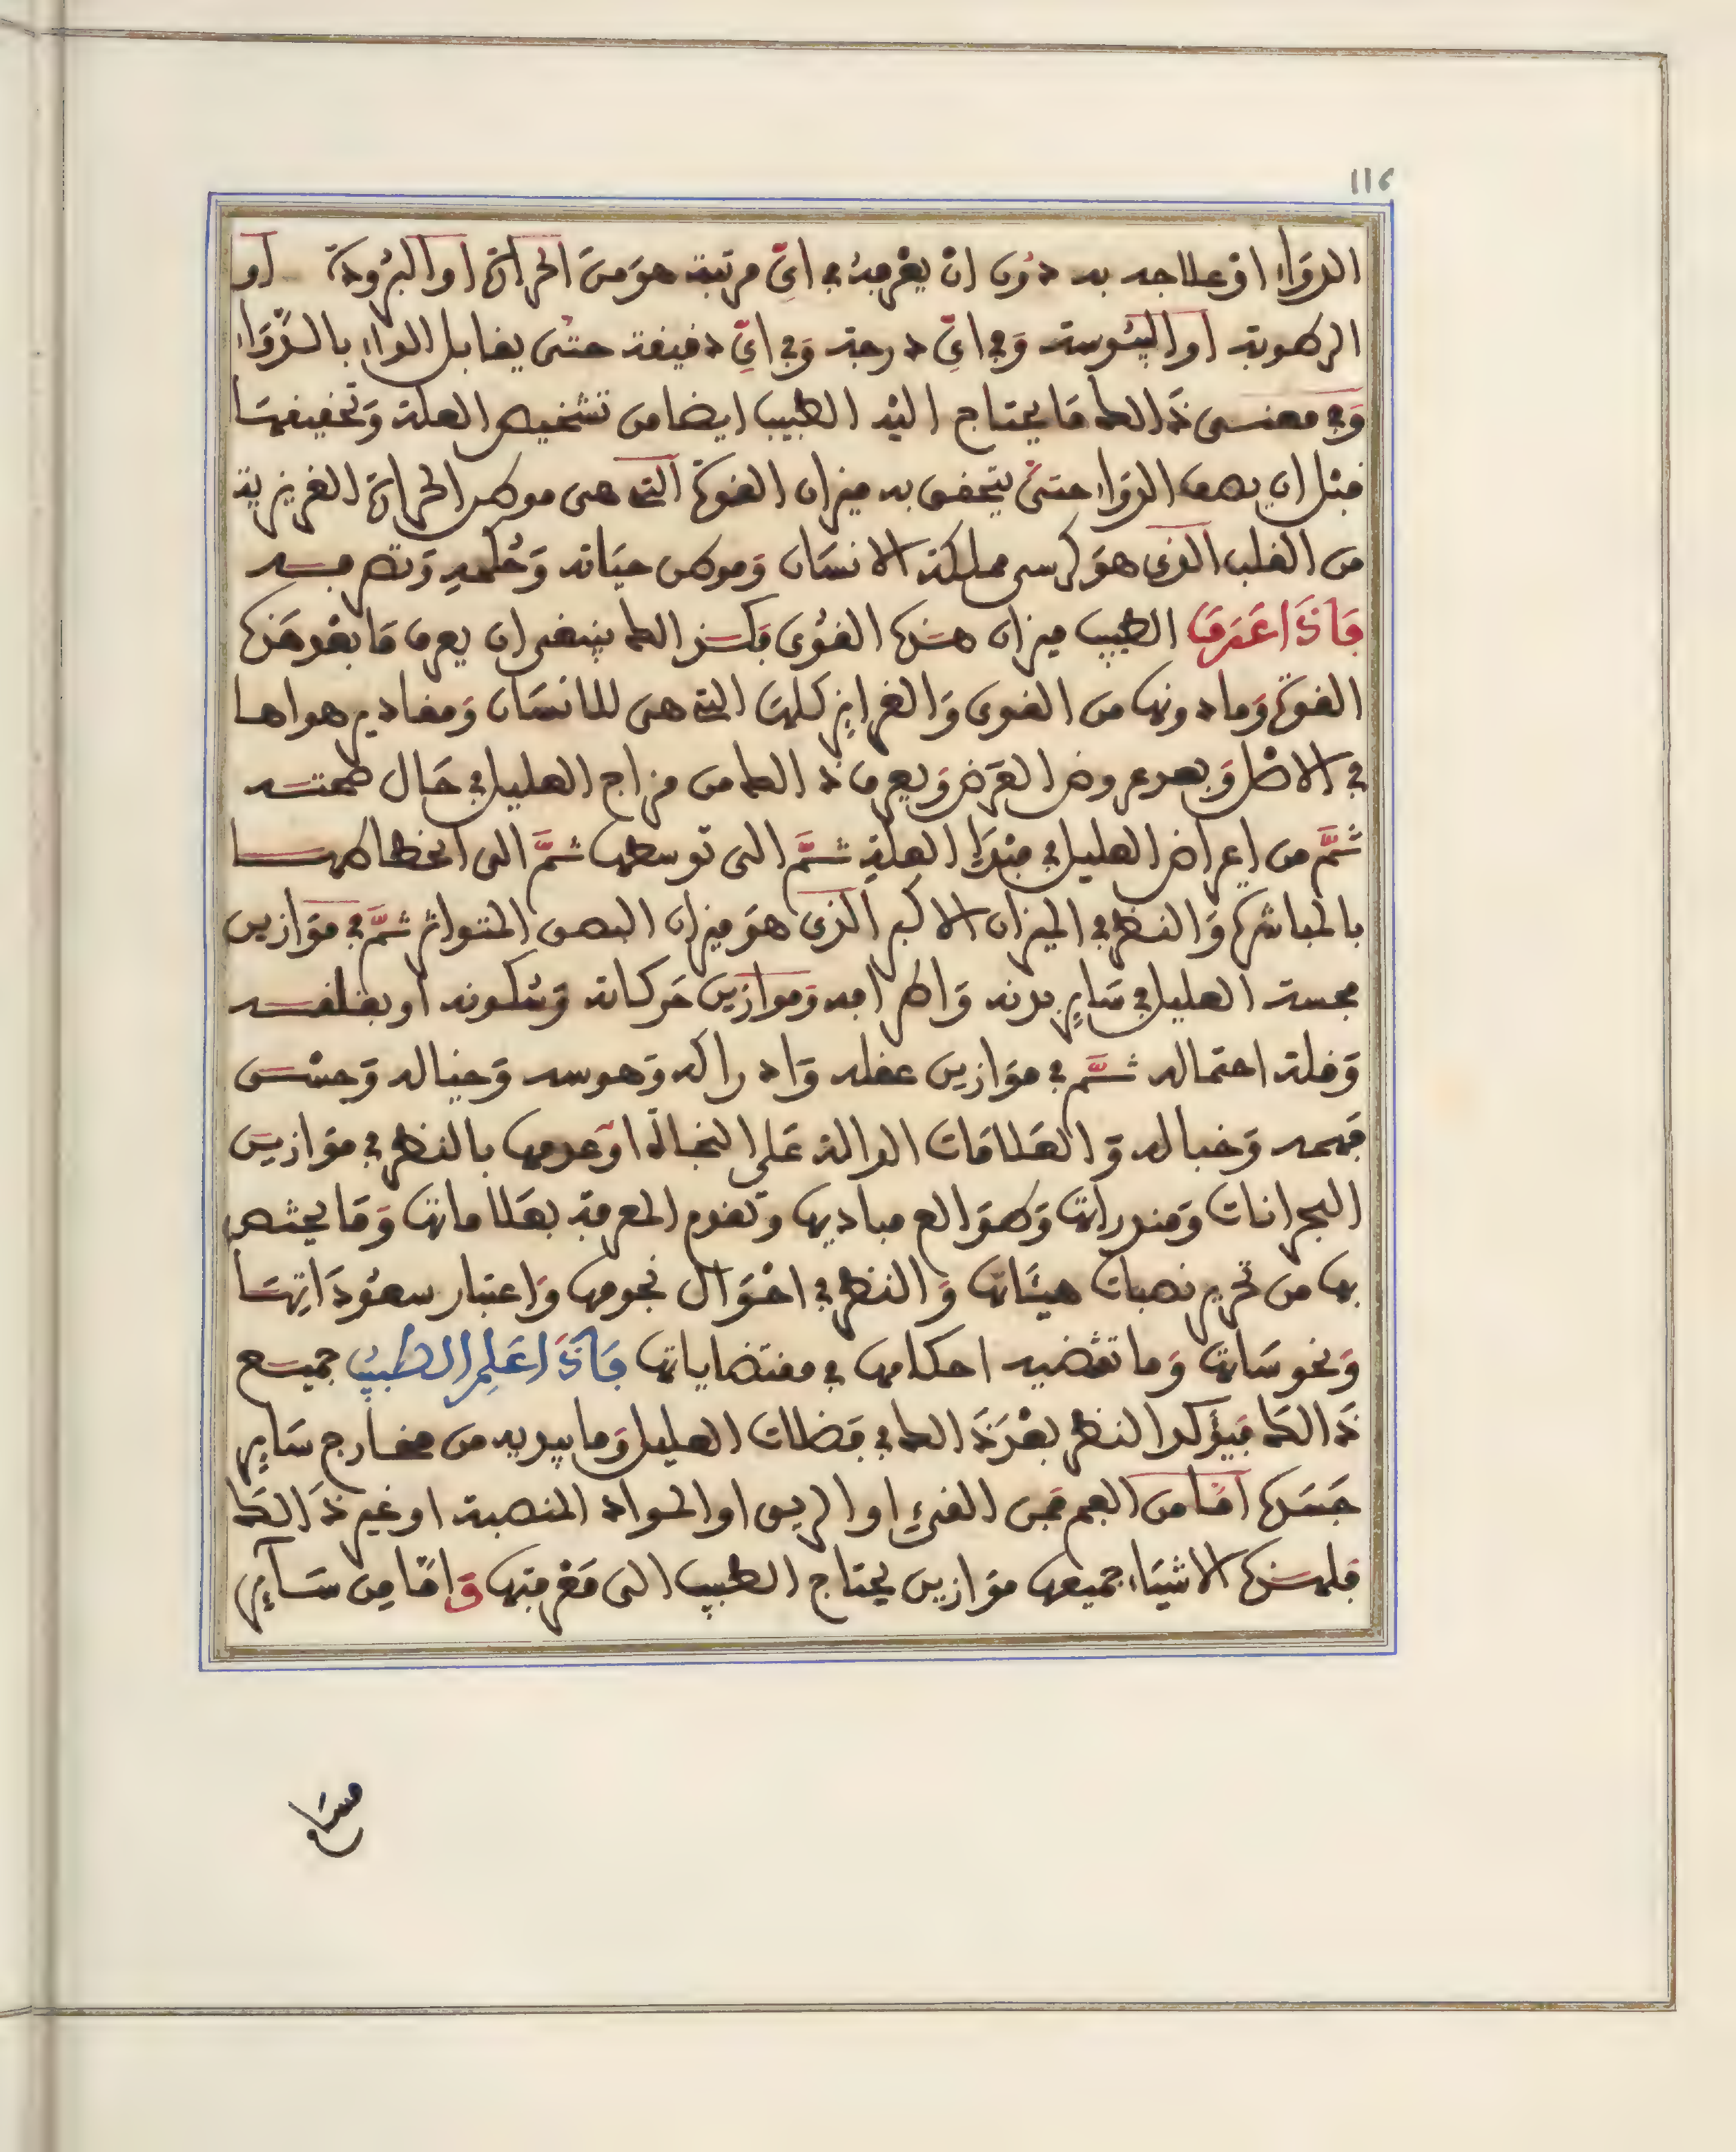 116
الدَوَاءِ اوْ علاجه به دُون انْ يعْرِفهُ في ايّ مرتبة هوَ منَ الحرارة او البرُودة او
الرطوبة او اليبُوسة وَفي ايّ درجة وَفي ايّ دقيقة حتى يقابل الداء بالدّوَاء
وَفي معنى ذَالك مَا يحتاج اليْه الطبيب ايضا من تشخيص العلة وَتحقيقهَا
قبْل ان يصف الدوَاء حتىّ يتحقق به ميزان القوة التي هي موطن الحرارة الغريزية
من القلب الذي هوَ كرسي مملكة الانسَان وَموطن حيَاته وَحُكمهِ وَتصرفه
فَاذَا عَرَفَ الطبيب ميزان هذه القوُى فكذالك ينبغي ان يعرف مَا بعْد هَذه
القوة وَما دونها من القوى وَالغرايز كلهَا التي هي للانسَان وَمقادير هواها
في الاصْل وَبعد عروض العَرَض وَيعرف ذالك من مزاج العليل في حَال صحته
ثمَّ من اعراض العليل في مبْدَإ العلّة ثمَّ الى توسطها ثمَّ الى انحطاطها
بالمباشرة وَالنظر في الميزان الاكبر الذي هوَ ميزان النبض المتواتر ثمَّ في موَازين
مجسة العليل في سَايِر بدنه وَاطرافه وَموازين حَركاته وَسُكونه او بقلقه
وَقلة احتماله ثمَّ في موَازين عقله وَادراكه وَهوسه وَخياله وَحسْن
فهمه وَخباله وَالعَلامَات الدالة عَلى النجاة اوْ عدمها بالنظر في موَازين
البحرانات وَمنذراتهَا وَطوَالع مباديها وَتقدم المعرفة بعَلاماتها وَمَا يختص
بها من تحرير نصبات هيئَاتها وَالنظر في احْوَال نجومها وَاعتبار سعُودَاتِهَا
وَنحوسَاتها وَما تقتضيه احكامها في مقتضاياتها فَاذَا عَلِمَ الطبيبُ جميع
ذَالكَ فَيؤَكد النظر بعْدَ ذَالك في فضلات العليل وَما يبديه من مخارج سَايِر
جَسَده امّا من الفم فمن القيءِ او الريق او المواد المنصبة او غير ذَالكَ
فلهذه الاشيَاء جميعها موَازين يحتاج الطبيب الى مَعْرفتها وَامّا من سَآيِر
مسَام